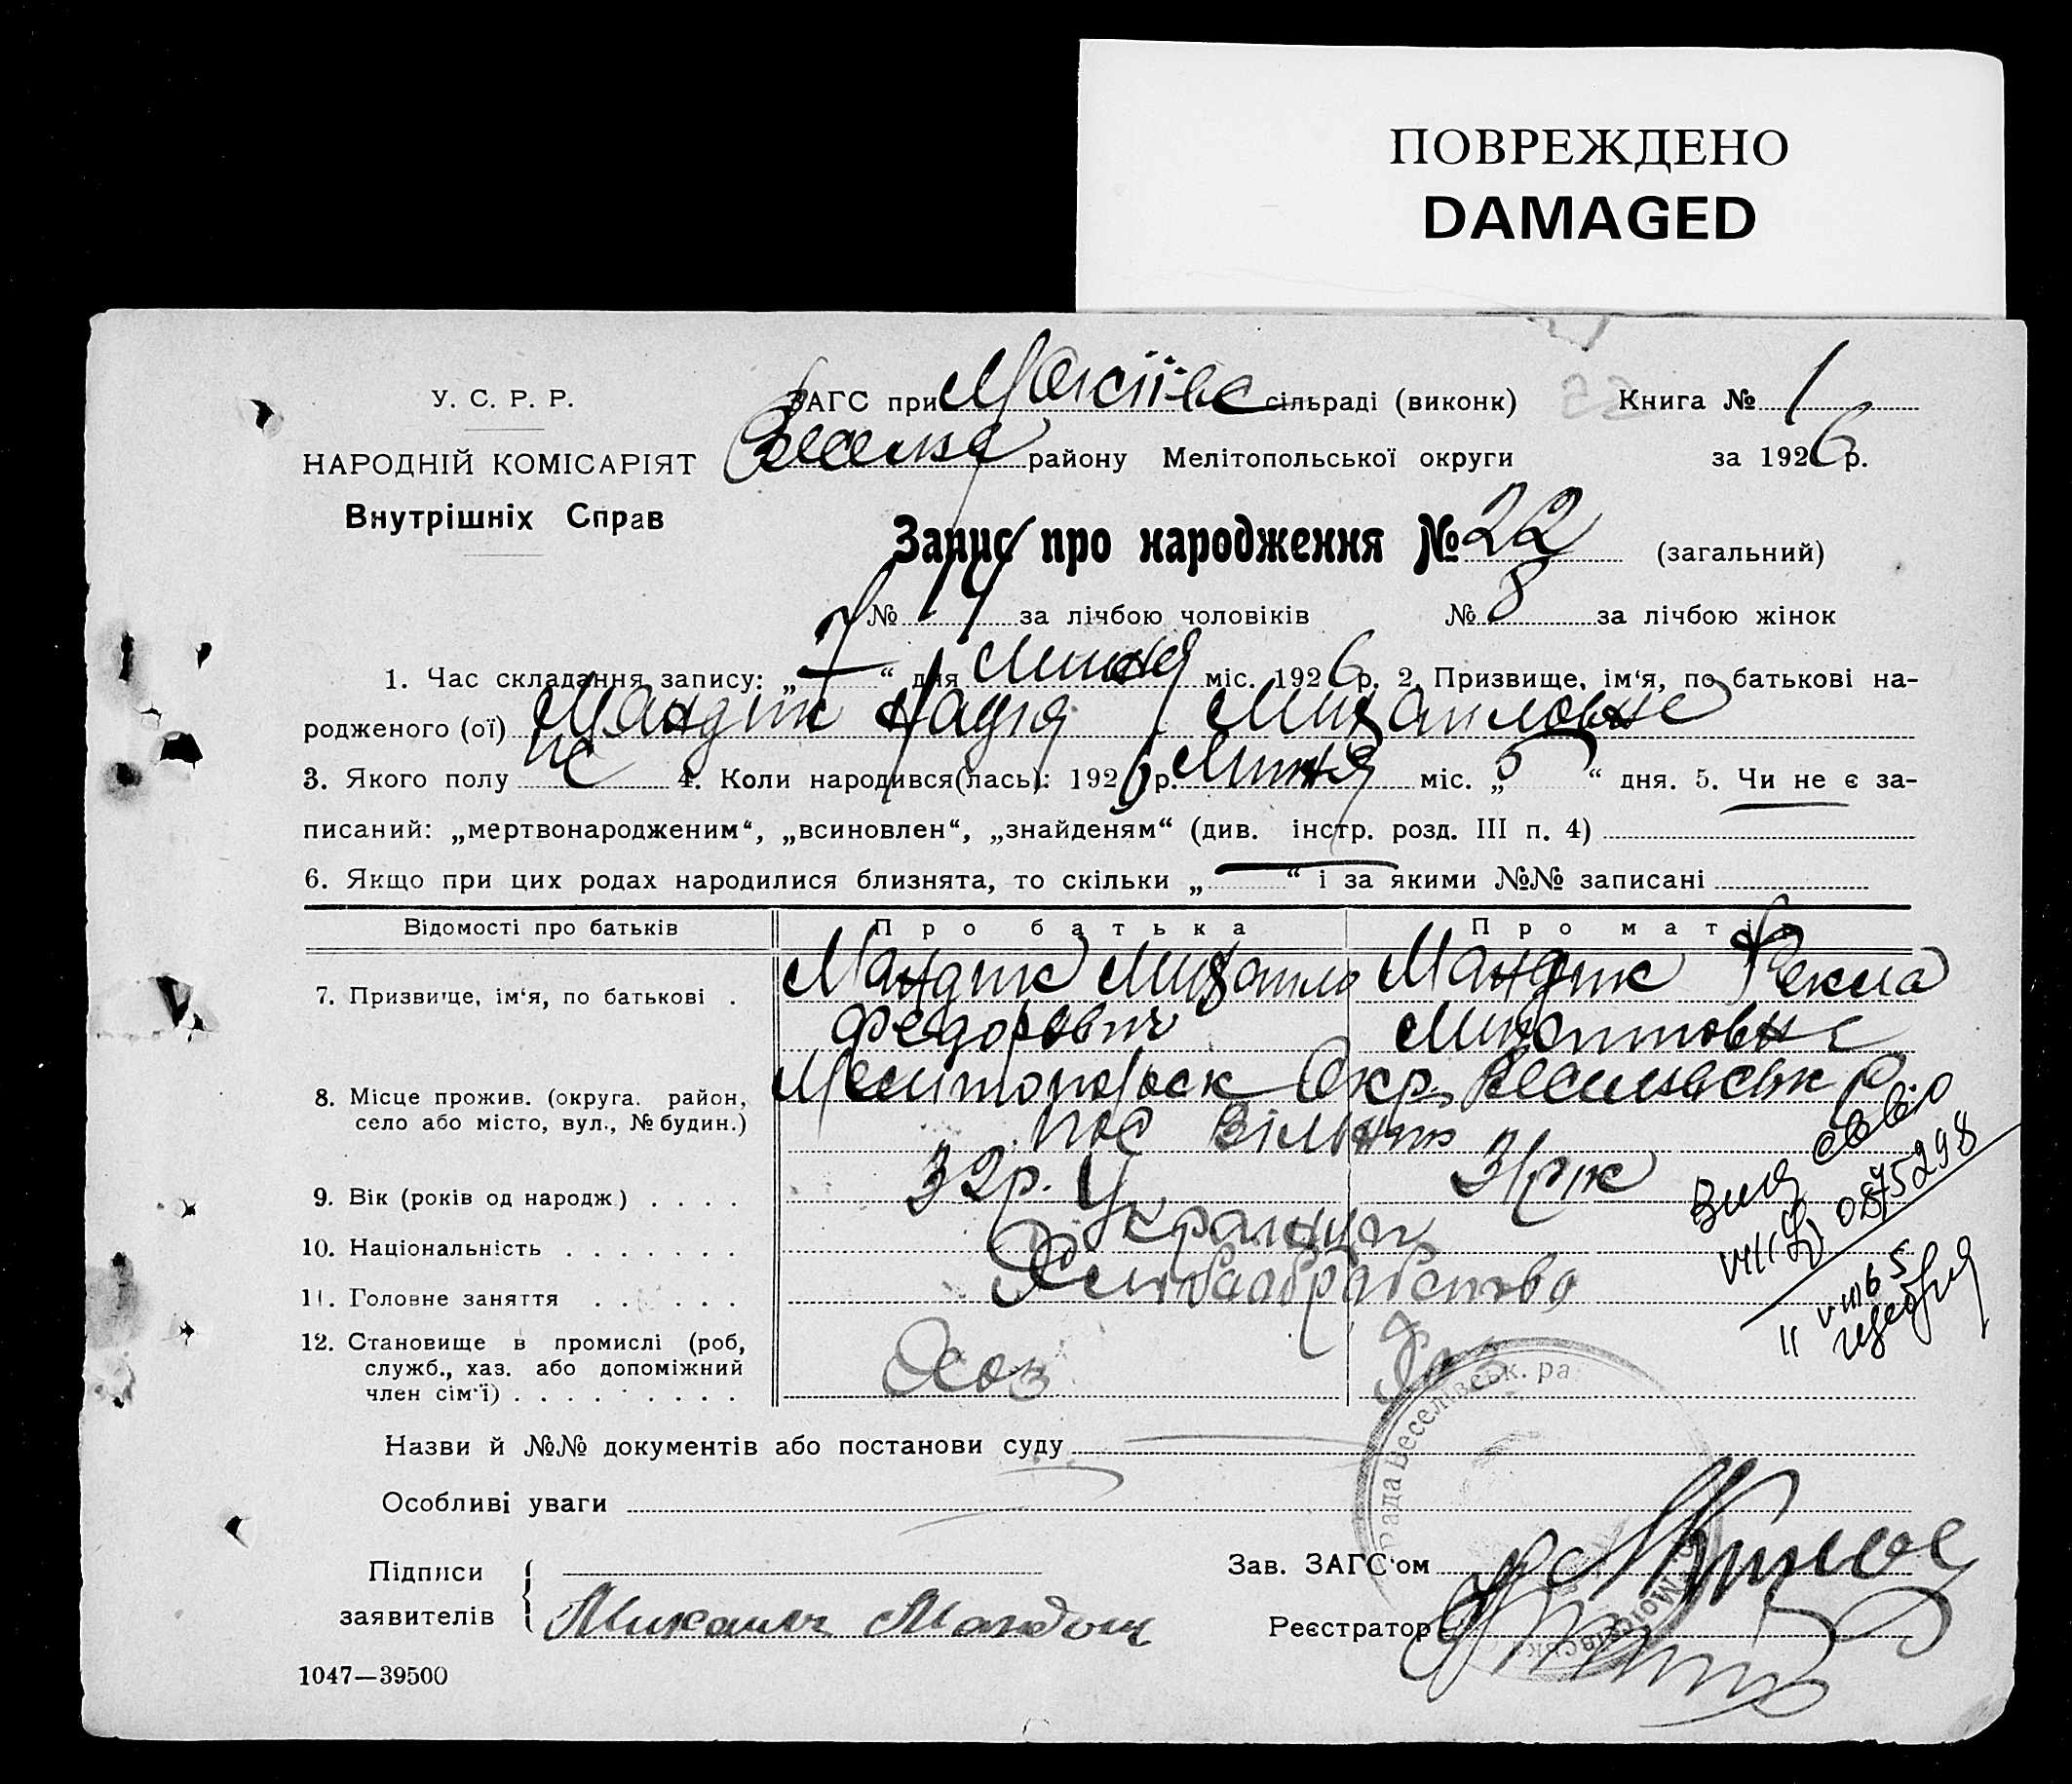 ПОВРЕЖДЕНО
DAMAGED
У. С. Р. Р.
НАРОДНІЙ КОМІСАРІЯТ
Внутрішніх Справ
ЗАГС при сільраді (виконк) Книга № 1
району Мелітопольської округи за 1926 р.
Запис про народження № 22 (загальний)
№ 14 за лічбою чоловіків № 8 за лічбою жінок
1. Час складання запису: „7“ дня Липня міс. 1926 р. 2. Призвище, ім‘я, по батькові на-
родженого (ої) Мандик Надія Михайловне
3. Якого полу 4. Коли народився(лась): 1926 р. Липня міс. „5“ дня. 5. Чи не є за-
писаний: „мертвонародженим“, „всиновлен“, „знайденям“ (див. інстр. розд. III п. 4)
6. Якщо при цих родах народилися близнята, то скільки „ “ і за якими №№ записані
Відомості про батьків Про батька Про матір
7. Призвище, ім‘я, по батькові . Мандик Михайло Мандик Фекла
Федорович
8. Місце прожив. (округа. район, Окр.
село або місто, вул., № будин.) пос Вільний
9. Вік (років од народж) . . . . 32р. 31рік
10. Національність . . . . . . . Українци
11. Головне заняття . . . . . . Хлібообрабство
12. Становище в промислі (роб, Хоз
служб., хаз. або допоміжний
член сім‘ї) . . . . . . . .
Назви й №№ документів або постанови суду
Особливі уваги
Підписи
заявителів
Зав. ЗАГС‘ом
Реєстратор
1047—39500